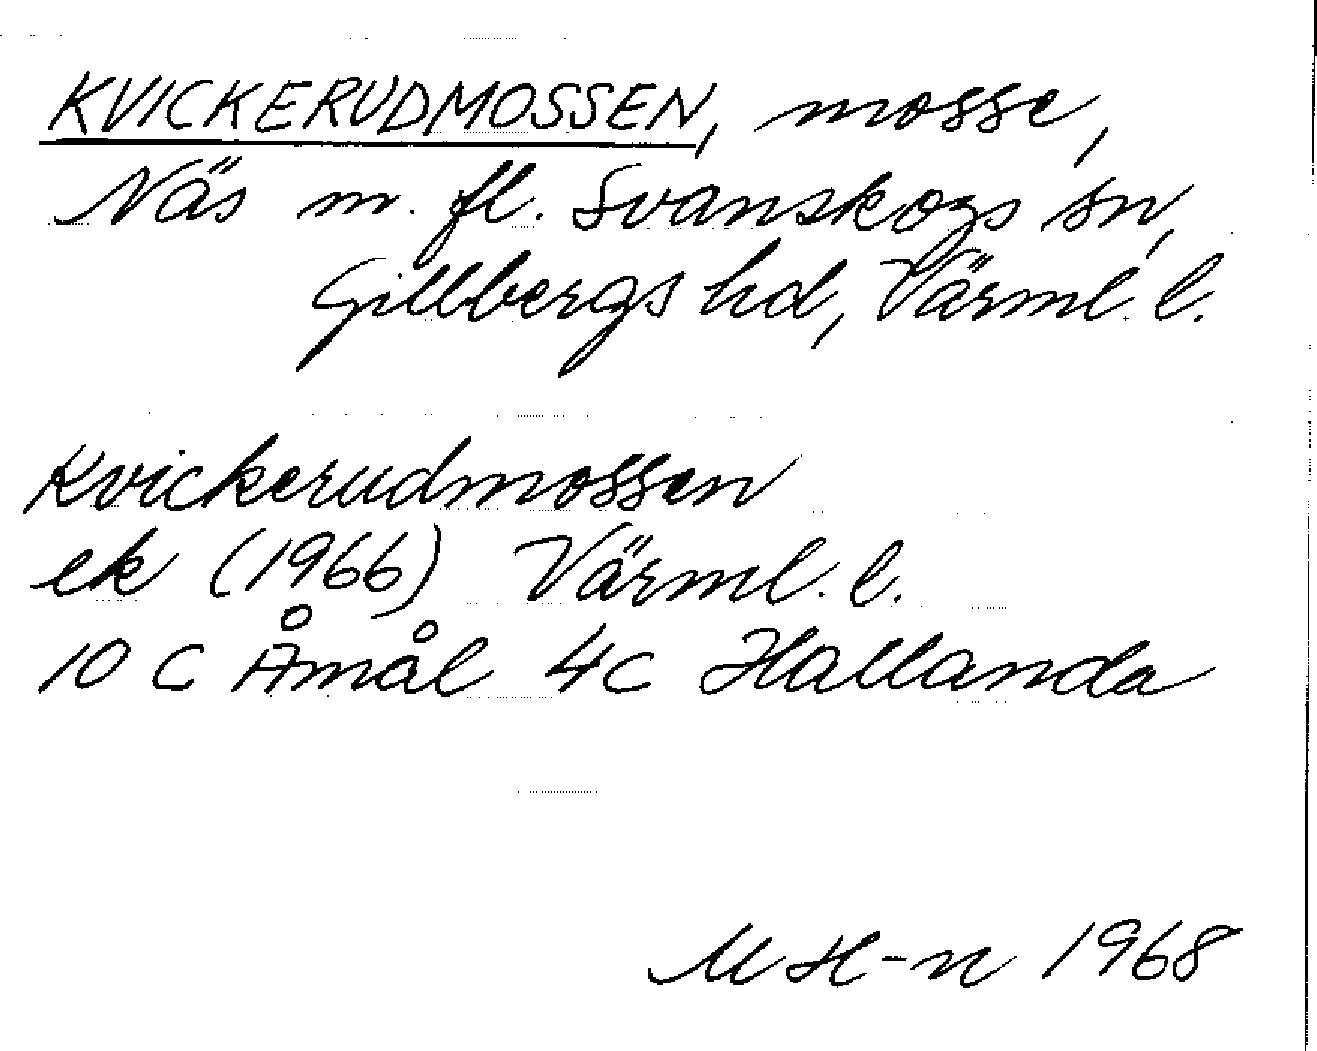 KVICKERUDMOSSEN, mosse,
Näs m. fl. Svanskogs sn,
Gillbergs hd, Värml. l.
Kvickerudmossen
ek (1966) Värml. l.
10 C Åmål 4c Hallanda
M H-n 1968